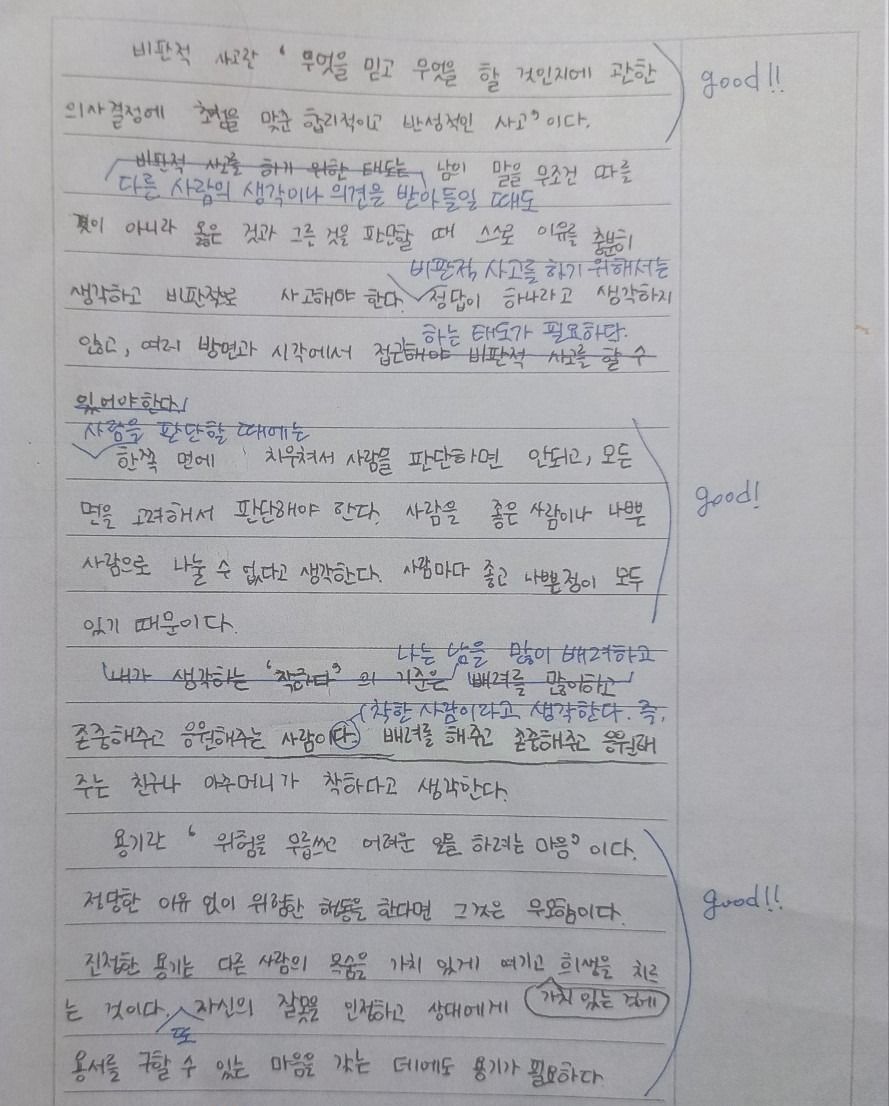 비판적 사고란 ‘ 무엇을 믿고 무엇을 할 것인지에 관한
good!!
의사결정에 초점을 맞춘 합리적이고 반성적인 사고’이다.
비판적 사고를 하기 위한 태도는 남의 말을 무조건 따를
다른 사람의 생각이나 의견을 받아들일 때도
것이 아니라 옳은 것과 그른 것을 판단할 때 스스로 이유를 충분히
비판적 사고를 하기 위해서는
생각하고 비판적으로 사고해야 한다. 정답이 하나라고 생각하지
하는 태도가 필요하다.
않고, 여러 방면과 시각에서 접근해야 비판적 사고를 할 수
있어야한다.
사람을 판단할 때에는
한쪽 면에 치우쳐서 사람을 판단하면 안되고, 모든
good!
면을 고려해서 판단해야 한다. 사람을 좋은 사람이나 나쁜
사람으로 나눌 수 없다고 생각한다. 사람마다 좋고 나쁜점이 모두
있기 때문이다.
나는 남을 많이 배려하고
내가 생각하는 ‘착하다’의 기준은 배려를 많이하고
착한 사람이라고 생각한다. 즉,
존중해주고 응원해주는 사람이다. 배려를 해주고 존중해주고 응원해
주는 친구나 아주머니가 착하다고 생각한다.
용기란 ‘ 위험을 무릅쓰고 어려운 일을 하려는 마음’이다.
정당한 이유 없이 위험한 행동을 한다면 그것은 무모함이다.
good!!
진정한 용기는 다른 사람의 목숨을 가치 있게 여기고 희생을 치르
가치 있는 것에
는 것이다. 자신의 잘못을 인정하고 상대에게
또
용서를 구할 수 있는 마음을 갖는 데에도 용기가 필요하다